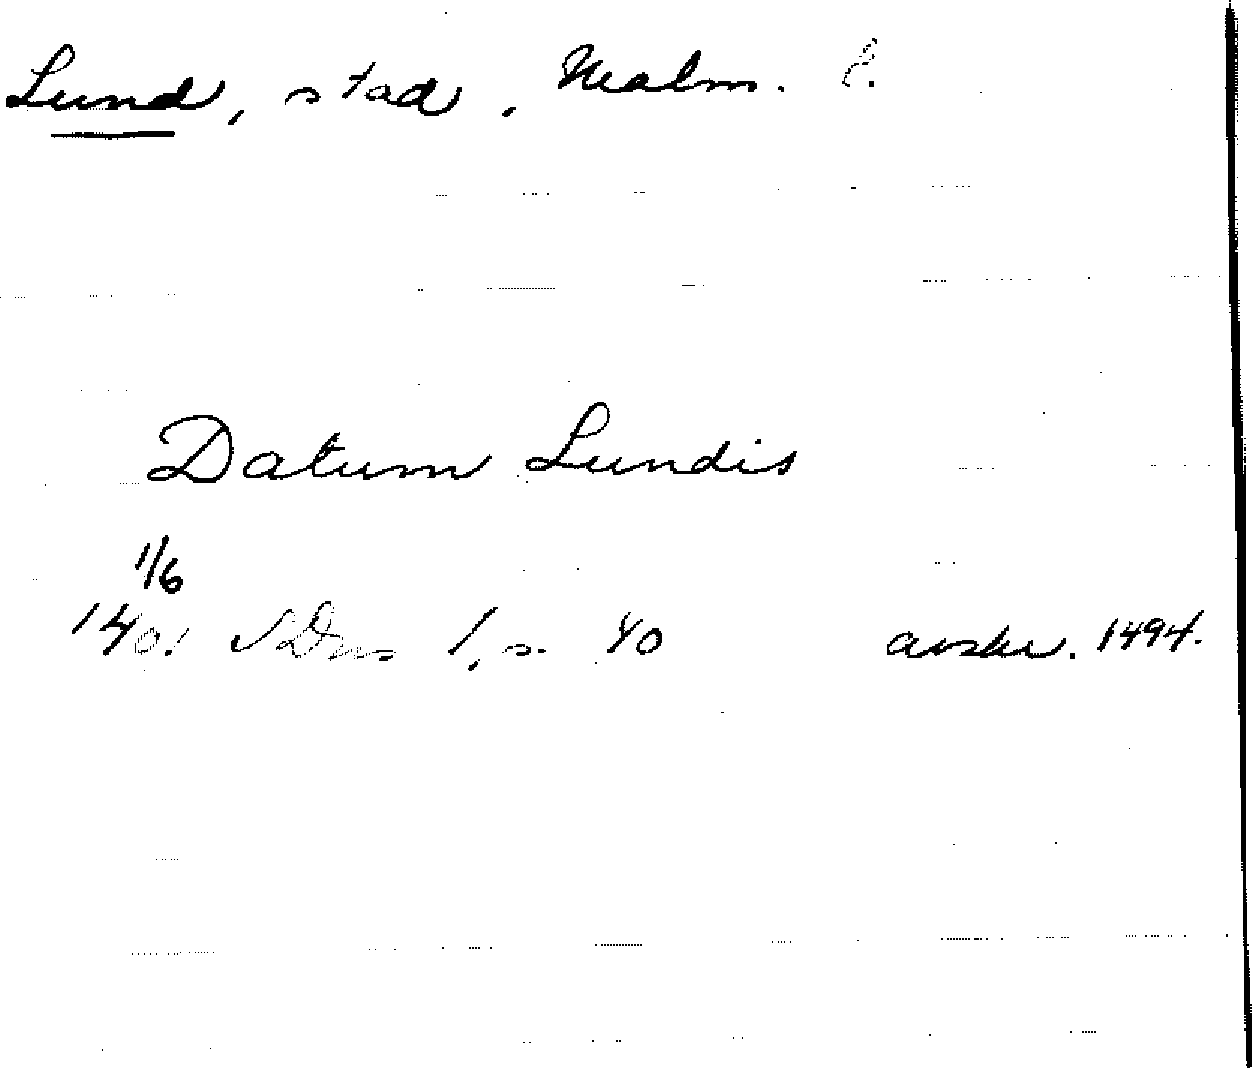 Lund, stad, Malm. l.
Datum Lundis
1/6
1401 SDns 1, s. 40 avskr. 1494.